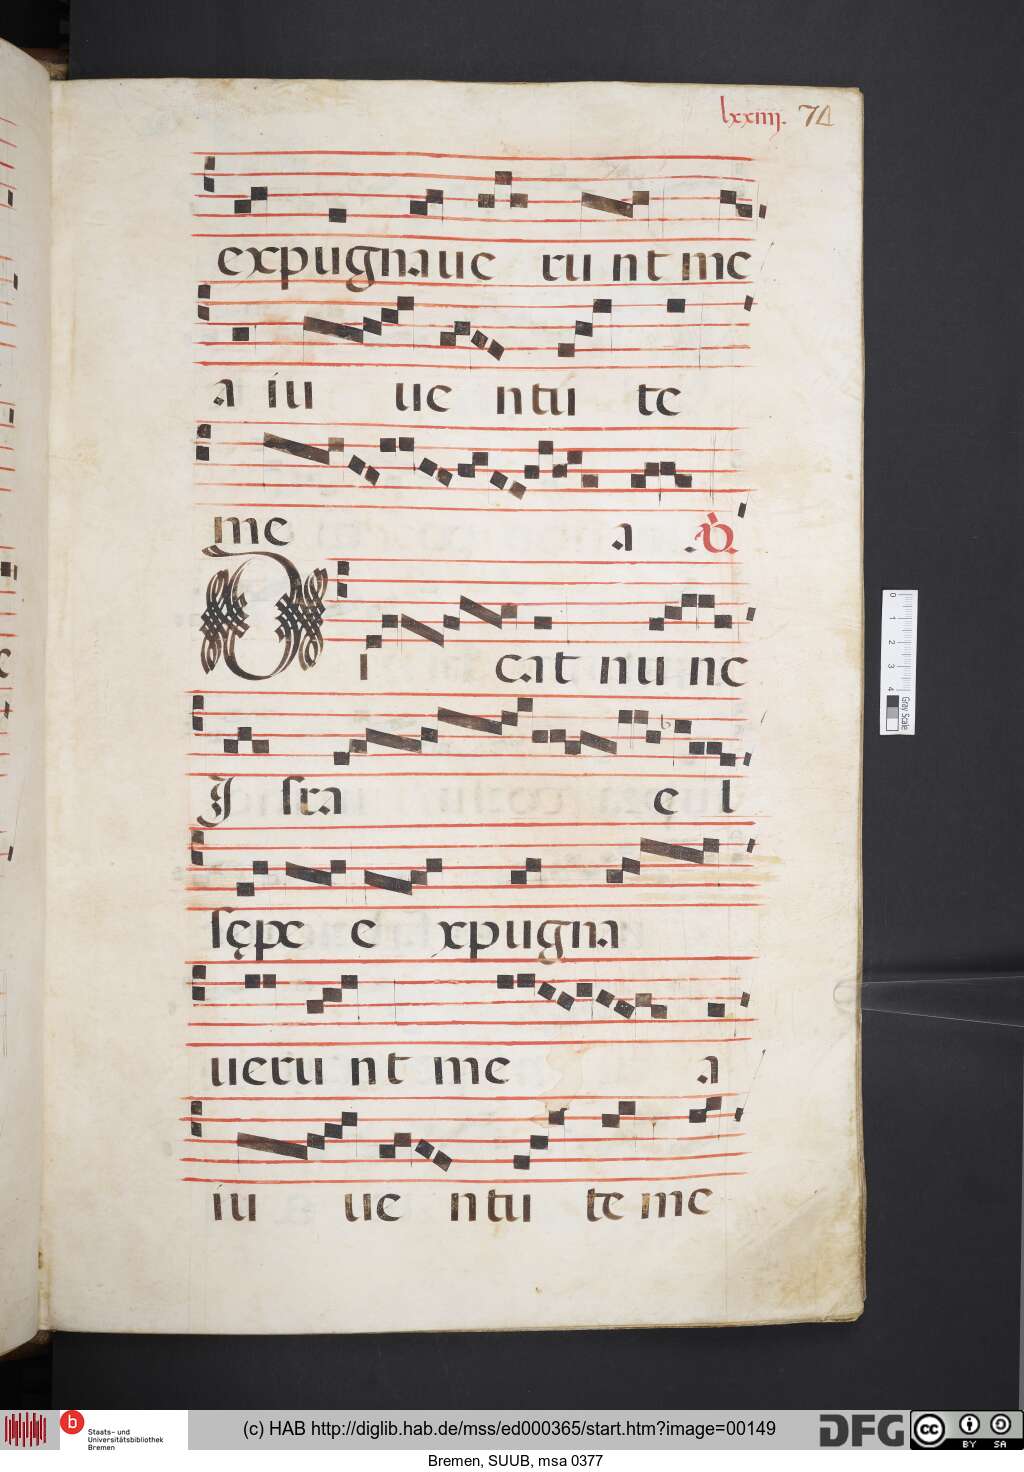 lxxiiij. 74
expugnaue runt me
a iu ue ntu te
me a .V.
Dicat nunc
Israel
sępe expugna
uerunt me a
iu ue ntu te me
0 1 2 3 4 Gray Scale
b Staats- und Universitätsbibliothek Bremen
(c) HAB http://diglib.hab.de/mss/ed000365/start.htm?image=00149
DFG
cc BY SA
Bremen, SUUB, msa 0377